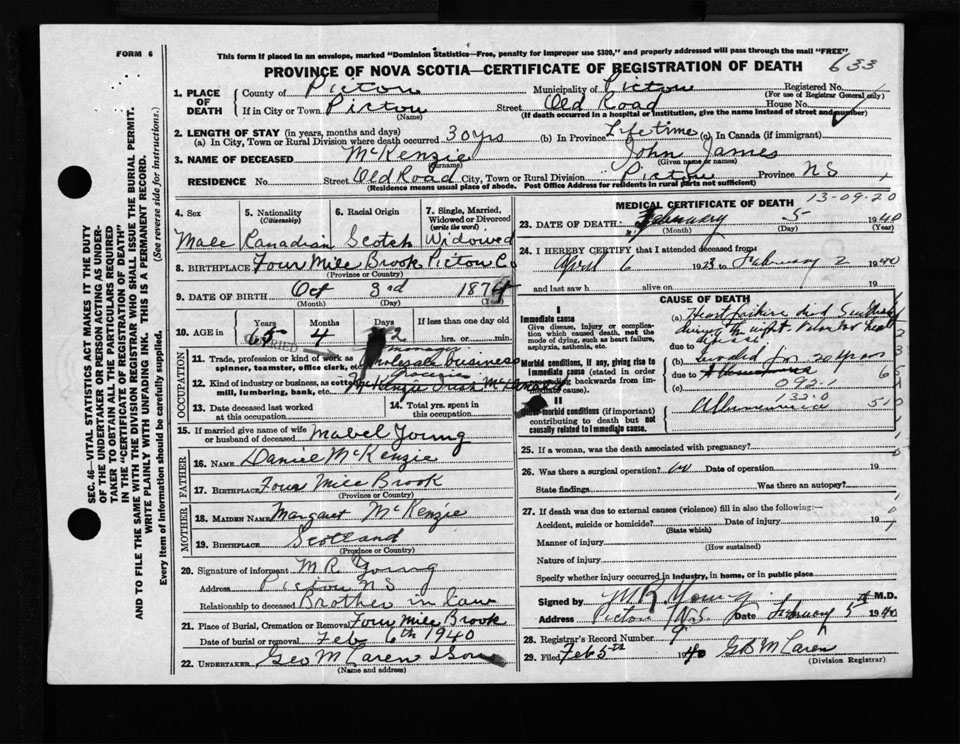 FORM 6
This form if placed in an envelope, marked "Dominion Statistics—Free, penalty for improper use $300," and properly addressed will pass through the mail "FREE"
PROVINCE OF NOVA SCOTIA—CERTIFICATE OF REGISTRATION OF DEATH
633
SEC. 46—VITAL STATISTICS ACT MAKES IT THE DUTY
OF THE UNDERTAKER OR PERSON ACTING AS UNDER-
TAKER TO OBTAIN ALL THE PARTICULARS REQUIRED
IN THE "CERTIFICATE OF REGISTRATION OF DEATH"
AND TO FILE THE SAME WITH THE DIVISION REGISTRAR WHO SHALL ISSUE THE BURIAL PERMIT.
WRITE PLAINLY WITH UNFADING INK. THIS IS A PERMANENT RECORD.
Every item of information should be carefully supplied. (See reverse side for instructions.)
1. PLACE OF DEATH County of Pictou Municipality of Pictou Registered No.
(For use of Registrar General only)
If in City or Town Pictou Street Old Road House No.
(Name) (If death occurred in a hospital or institution, give the name instead of street and number)
2. LENGTH OF STAY (in years, months and days)
(a) In City, Town or Rural Division where death occurred 30 yrs (b) In Province Lifetime (c) In Canada (if immigrant)
3. NAME OF DECEASED McKenzie John James
(Surname) (Given name or names)
RESIDENCE No. Street Old Road City, Town or Rural Division Pictou Province NS
(Residence means usual place of abode. Post Office Address for residents in rural parts not sufficient)
4. Sex 5. Nationality (Citizenship) 6. Racial Origin 7. Single, Married, Widowed or Divorced (write the word)
Male Canadian Scotch Widowed
8. BIRTHPLACE Four Mile Brook Pictou Co
(Province or Country)
9. DATE OF BIRTH Oct 3rd 1874
(Month) (Day) (Year)
10. AGE in Years Months Days If less than one day old
65 4 2 hrs. or min.
OCCUPATION
11. Trade, profession or kind of work as spinner, teamster, office clerk, etc. manager
Wholesale business
12. Kind of industry or business, as cotton mill, lumbering, bank, etc.
13. Date deceased last worked at this occupation
14. Total yrs. spent in this occupation
15. If married give name of wife or husband of deceased Mabel Young
FATHER
16. NAME Daniel McKenzie
17. BIRTHPLACE Four Mile Brook
(Province or Country)
MOTHER
18. MAIDEN NAME Margaret McKenzie
19. BIRTHPLACE Scotland
(Province or Country)
20. Signature of informant M R Young
Address Pictou NS
Relationship to deceased Brother in law
21. Place of Burial, Cremation or Removal Four Mile Brook
Date of burial or removal Feb 6th 1940
22. UNDERTAKER Geo McLaren & Son
(Name and address)
MEDICAL CERTIFICATE OF DEATH
13-09-20
23. DATE OF DEATH: February 5 1940
(Month) (Day) (Year)
24. I HEREBY CERTIFY that I attended deceased from:
April 6 1923 to February 2 1940
and last saw h alive on 19
CAUSE OF DEATH
I
Immediate cause
Give disease, injury or complication which caused death, not the mode of dying, such as heart failure, asphyxia, asthenia, etc.
(a) Heart failure died Suddenly
during the night.
due to
Morbid conditions, if any, giving rise to immediate cause (stated in order proceeding backwards from immediate cause)
(b) Invalid for 20 years
due to
(c) 092.1
132.0
II
Other morbid conditions (if important) contributing to death but not causally related to immediate cause.
Albuminuria
25. If a woman, was the death associated with pregnancy?
26. Was there a surgical operation? no Date of operation 19
State findings Was there an autopsy?
27. If death was due to external causes (violence) fill in also the following:—
Accident, suicide or homicide? Date of injury 19
(State which)
Manner of injury
(How sustained)
Nature of injury
Specify whether injury occurred in industry, in home, or in public place
Signed by M R Young M.D.
Address Pictou N.S. Date February 5 1940
28. Registrar's Record Number 9
29. Filed Feb 5th 1940 G B McLaren
(Division Registrar)